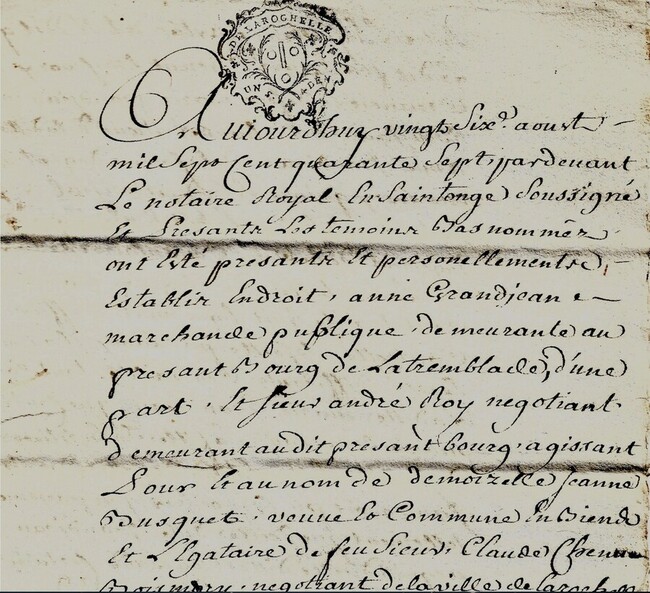 DE LAROCHELLE
UN S. 4 DEN
Aujourdhuy vingt Six.e aoust
mil Sept Cent quarante Sept, pardevant
Le notaire Royal En Saintonge Soussigné
Et Presants Les temoins Bas nommés
ont Esté presants Et personellements
Establis Endroit, anne Grandjean
marchande publique, demeurante au
presant Bourg de Latremblade, d'une
part, Et sieur andré Roy negotiant
demeurant audit presant bourg, agissant
Pour Et au nom de demoizelle Jeanne
Busquet, veuve Et Commune En Biends
Et Legataire de feu Sieur, Claude
Boismory, negotiant de la ville de laroch